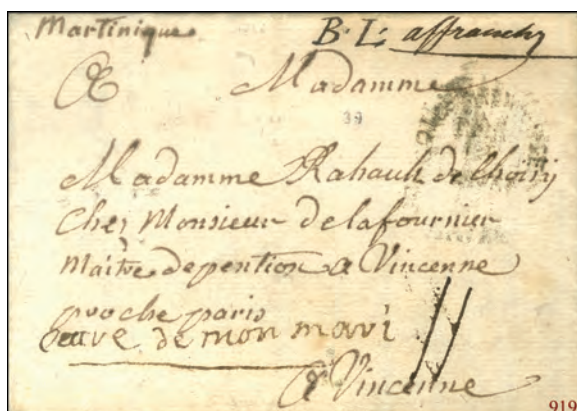 Martinique
B. L: affranchy
A Madamme
39
Madamme Rahault de Choisy
Chez Monsieur de lafournier
Maitre depention a Vincenne
proche paris
de mon mari
A Vincenne
919